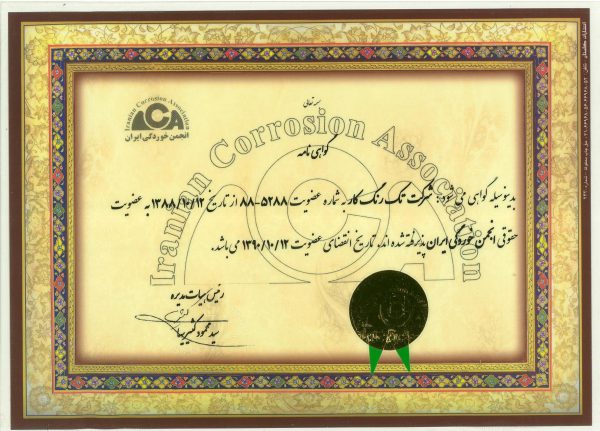 Iranian Corrosion Association
انجمن خوردگی ایران
بسمه تعالی
گواهی نامه
Iranian Corrosion Association
بدینوسیله گواهی می شود: شرکت تک رنگ کار به شماره عضویت ۵۲۸۸-۸۸ از تاریخ ۱۳۸۸/۱۰/۱۲ به عضویت
حقوقی انجمن خوردگی ایران پذیرفته شده اند. تاریخ انقضای عضویت ۱۳۹۰/۱۰/۱۲ می باشد.
رئیس هیات مدیره
سید محمود کشیر بیها